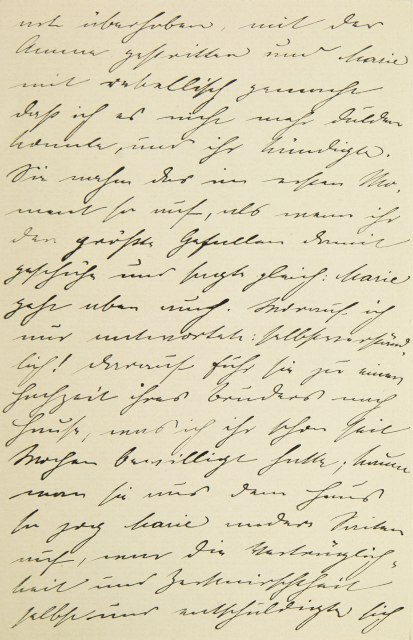 nete überhoben, mit der
Amme gestritten und Marie
mit rebellisch gemacht
daß ich es nicht mehr dulden
konnte, und ihr kündigte.
Sie nahm das im ersten Mo-
ment so auf, als wenn ihr
der größte Gefallen damit
geschähe und sagte gleich: Marie
geht aber auch. Worauf ich
nur antwortete: selbstverständ-
lich! Darauf fuhr sie zu einer
Hochzeit ihres Bruders nach
Hause, was ich ihr schon seit
Wochen bewilligt hatte; kaum
war sie aus dem Haus
so zog Marie andere Saiten
auf, war die Verträglich-
keit und Zerknirschtheit
selbst und entschuldigte sich